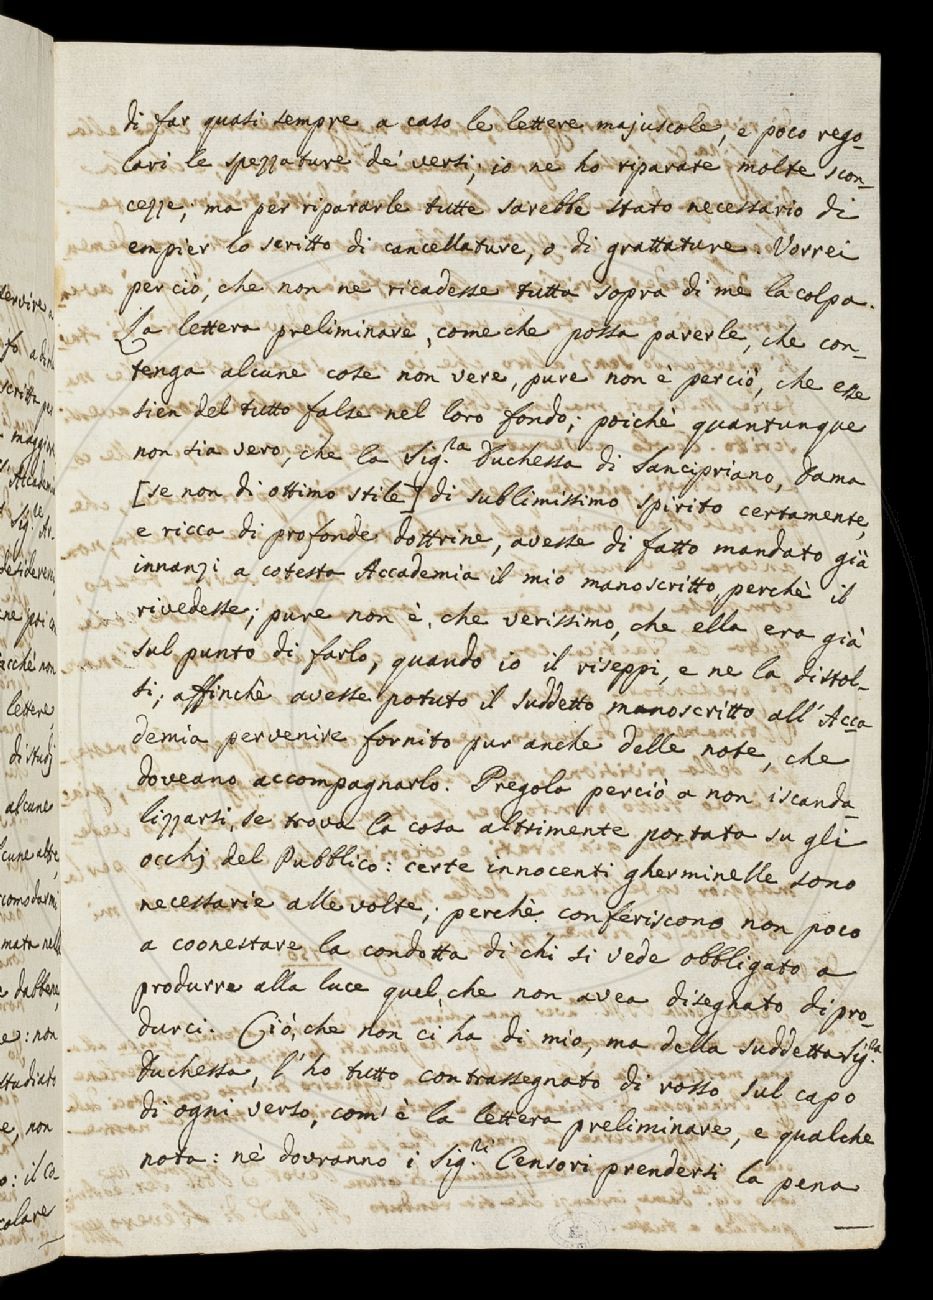 di far quasi sempre a caso le lettere majuscole, e poco rego-
lari le spezzature de' versi; io ne ho riparate molte scon-
cezze; ma per ripararle tutte sarebbe stato necessario di
empier lo scritto di cancellature, o di grattature. Vorrei
perciò, che non ne ricadesse tutta sopra di me la colpa.
La lettera preliminare, come che possa parerle, che con-
tenga alcune cose non vere, pure non è perciò, che esse
sien del tutto false nel loro fondo; poichè quantunque
non sia vero, che la Sig.ra Duchessa di Sancipriano, Dama
[se non di ottimo stile] di sublimissimo spirito certamente,
e ricca di profonde dottrine, avesse di fatto mandato già
innanzi a cotesta Accademia il mio manoscritto, perchè il
rivedesse; pure non è, che verissimo, che ella era già
sul punto di farlo, quando io il riseppi, e ne la distol-
si; affinchè avesse potuto il suddetto manoscritto all'Acca
demia pervenire fornito pur anche delle note, che
doveano accompagnarlo. Pregola perciò a non iscanda-
lizzarsi, se trova la cosa altrimente portata su gli
occhj del Pubblico: certe innocenti gherminelle sono
necessarie alle volte; perchè conferiscono non poco
a coonestare la condotta di chi si vede obbligato a
produrre alla luce quel, che non avea disegnato di pro-
durci. Ciò, che non ci ha di mio, ma della suddetta Sig.ra
Duchessa, l'ho tutto contrassegnato di rosso sul capo
di ogni verso, com'è la lettera preliminare, e qualche
nota: nè dovranno i Sig.ri Censori prendersi la pena